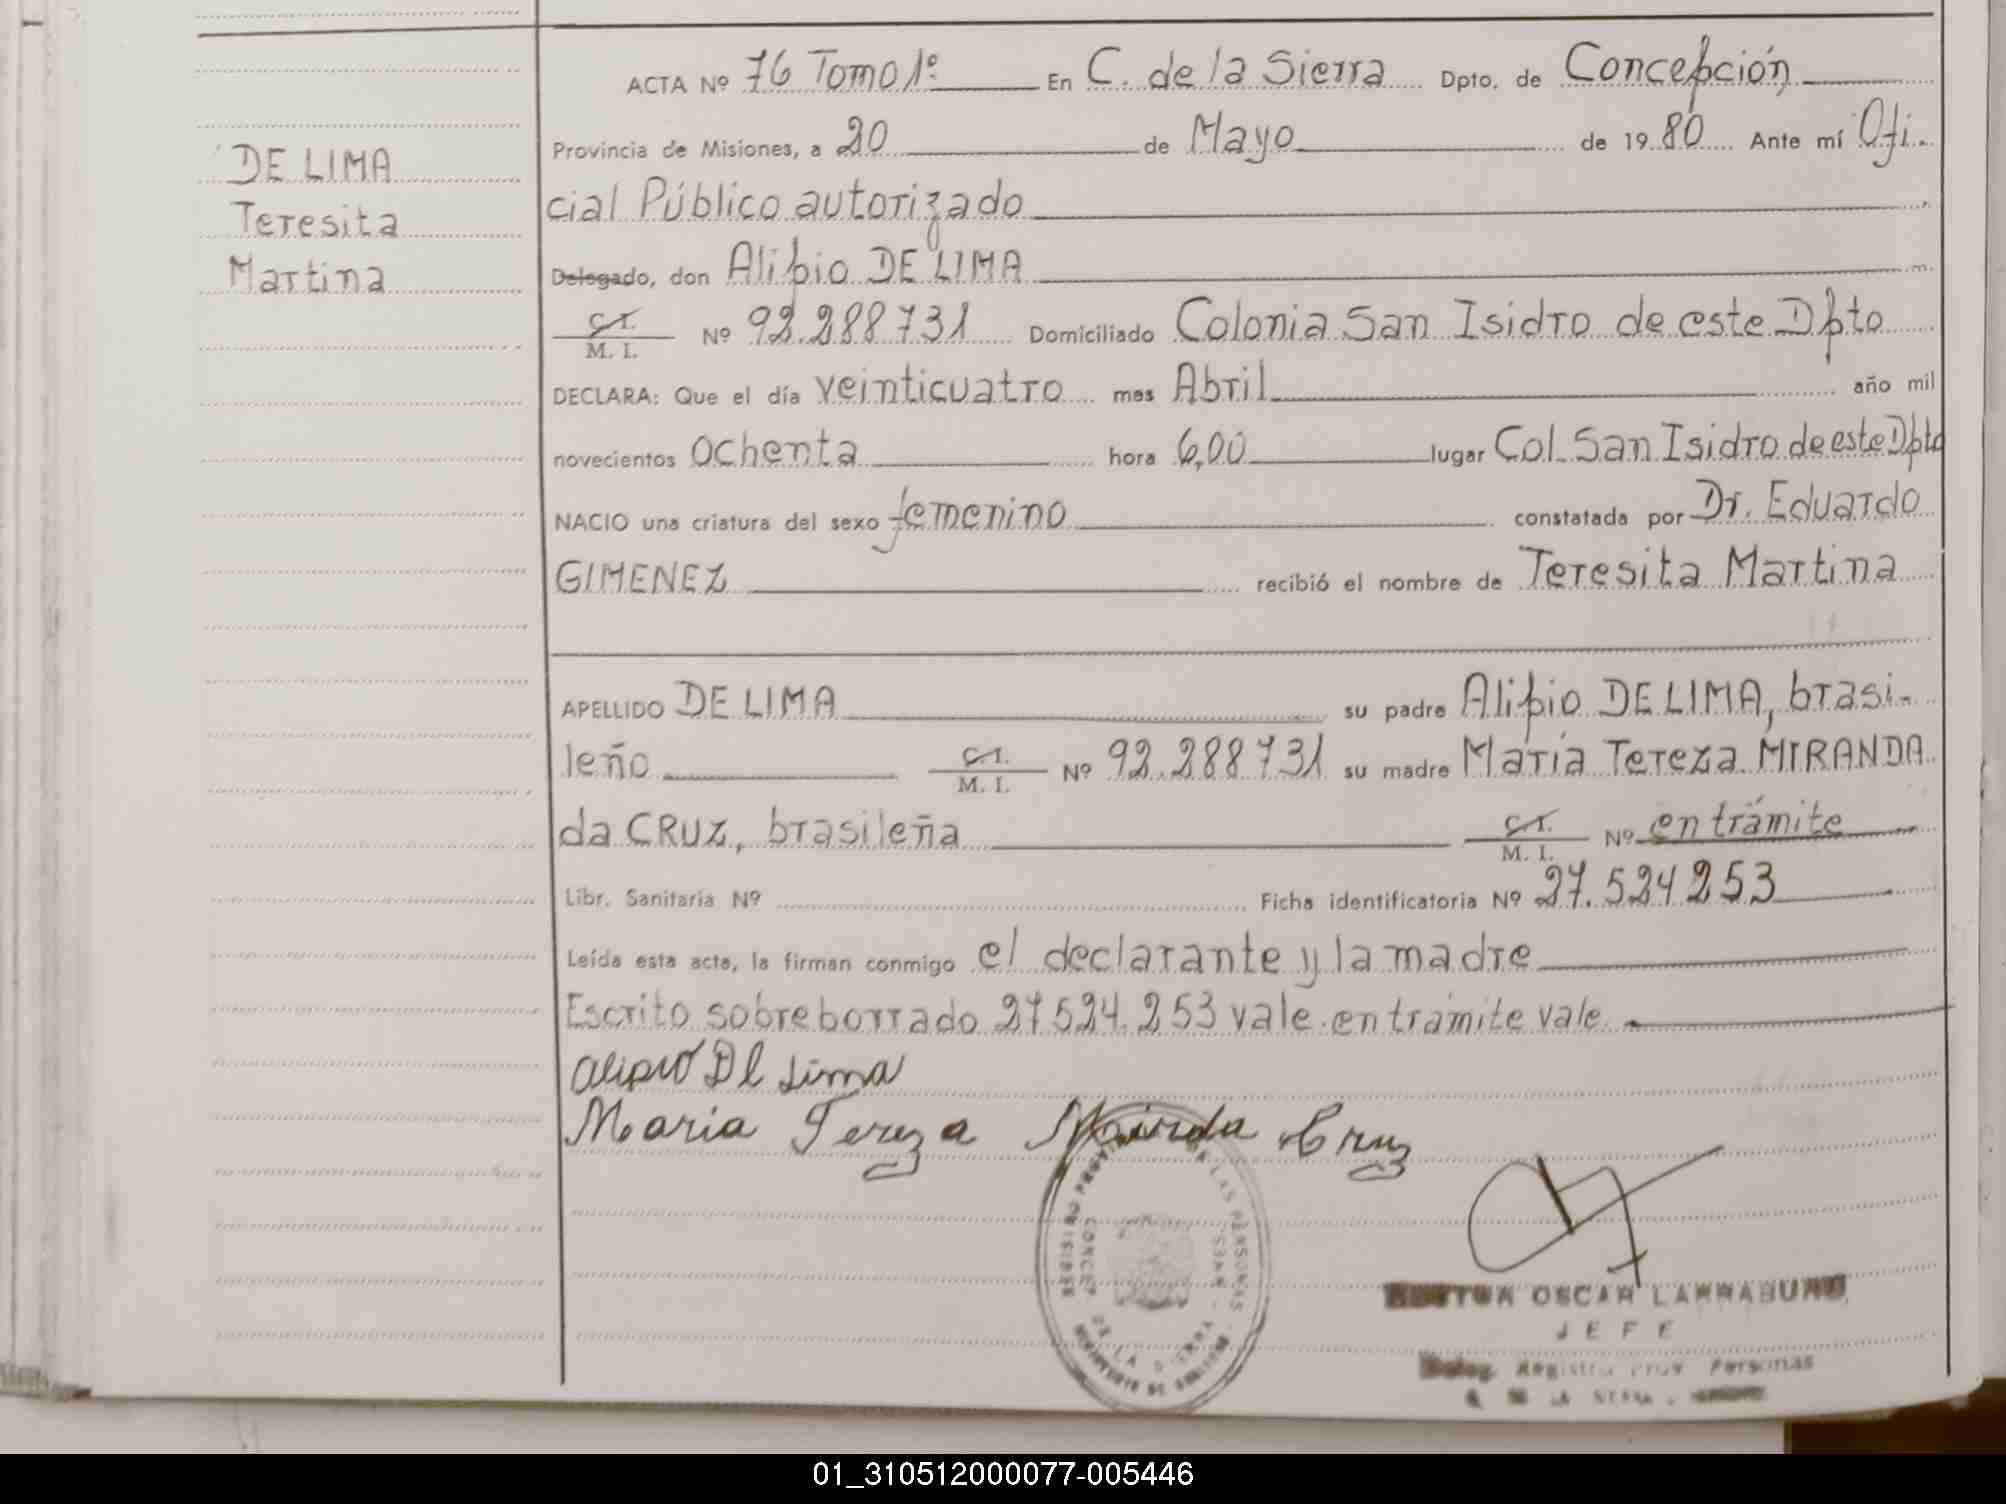 ACTA Nº 76 Tomo 1º En C. de la Sierra Dpto. de Concepción
Provincia de Misiones, a 20 de Mayo de 1980 Ante mí Ofi-
cial Público autorizado
Delegado, don Alipio DE LIMA
C.I. M. I. Nº 92.288731 Domiciliado Colonia San Isidro de este Dpto
DECLARA: Que el día veinticuatro mes Abril año mil
novecientos ochenta hora 6,00 lugar Col. San Isidro de este Dpto
NACIO una criatura del sexo femenino constatada por Dr. Eduardo
GIMENEZ recibió el nombre de Teresita Martina
APELLIDO DE LIMA su padre Alipio DE LIMA, brasi-
leño C.I. M. I. Nº 92.288731 su madre María Tereza MIRANDA
da CRUZ, brasileña C.I. M. I. Nº en trámite
Libr. Sanitaria Nº Ficha identificatoria Nº 27.524253
Leída esta acta, la firman conmigo el declarante y la madre
Escrito sobreborrado 27524.253 vale. en trámite vale.
DE LIMA
Teresita
Martina
Alipio De Lima
Maria Tereza Mirda Cruz
CONCEP. DE LA SIERRA
OSCAR LARRABURU
JEFE
Deleg. Registro Prov. Personas
LA SIERRA
01_310512000077-005446